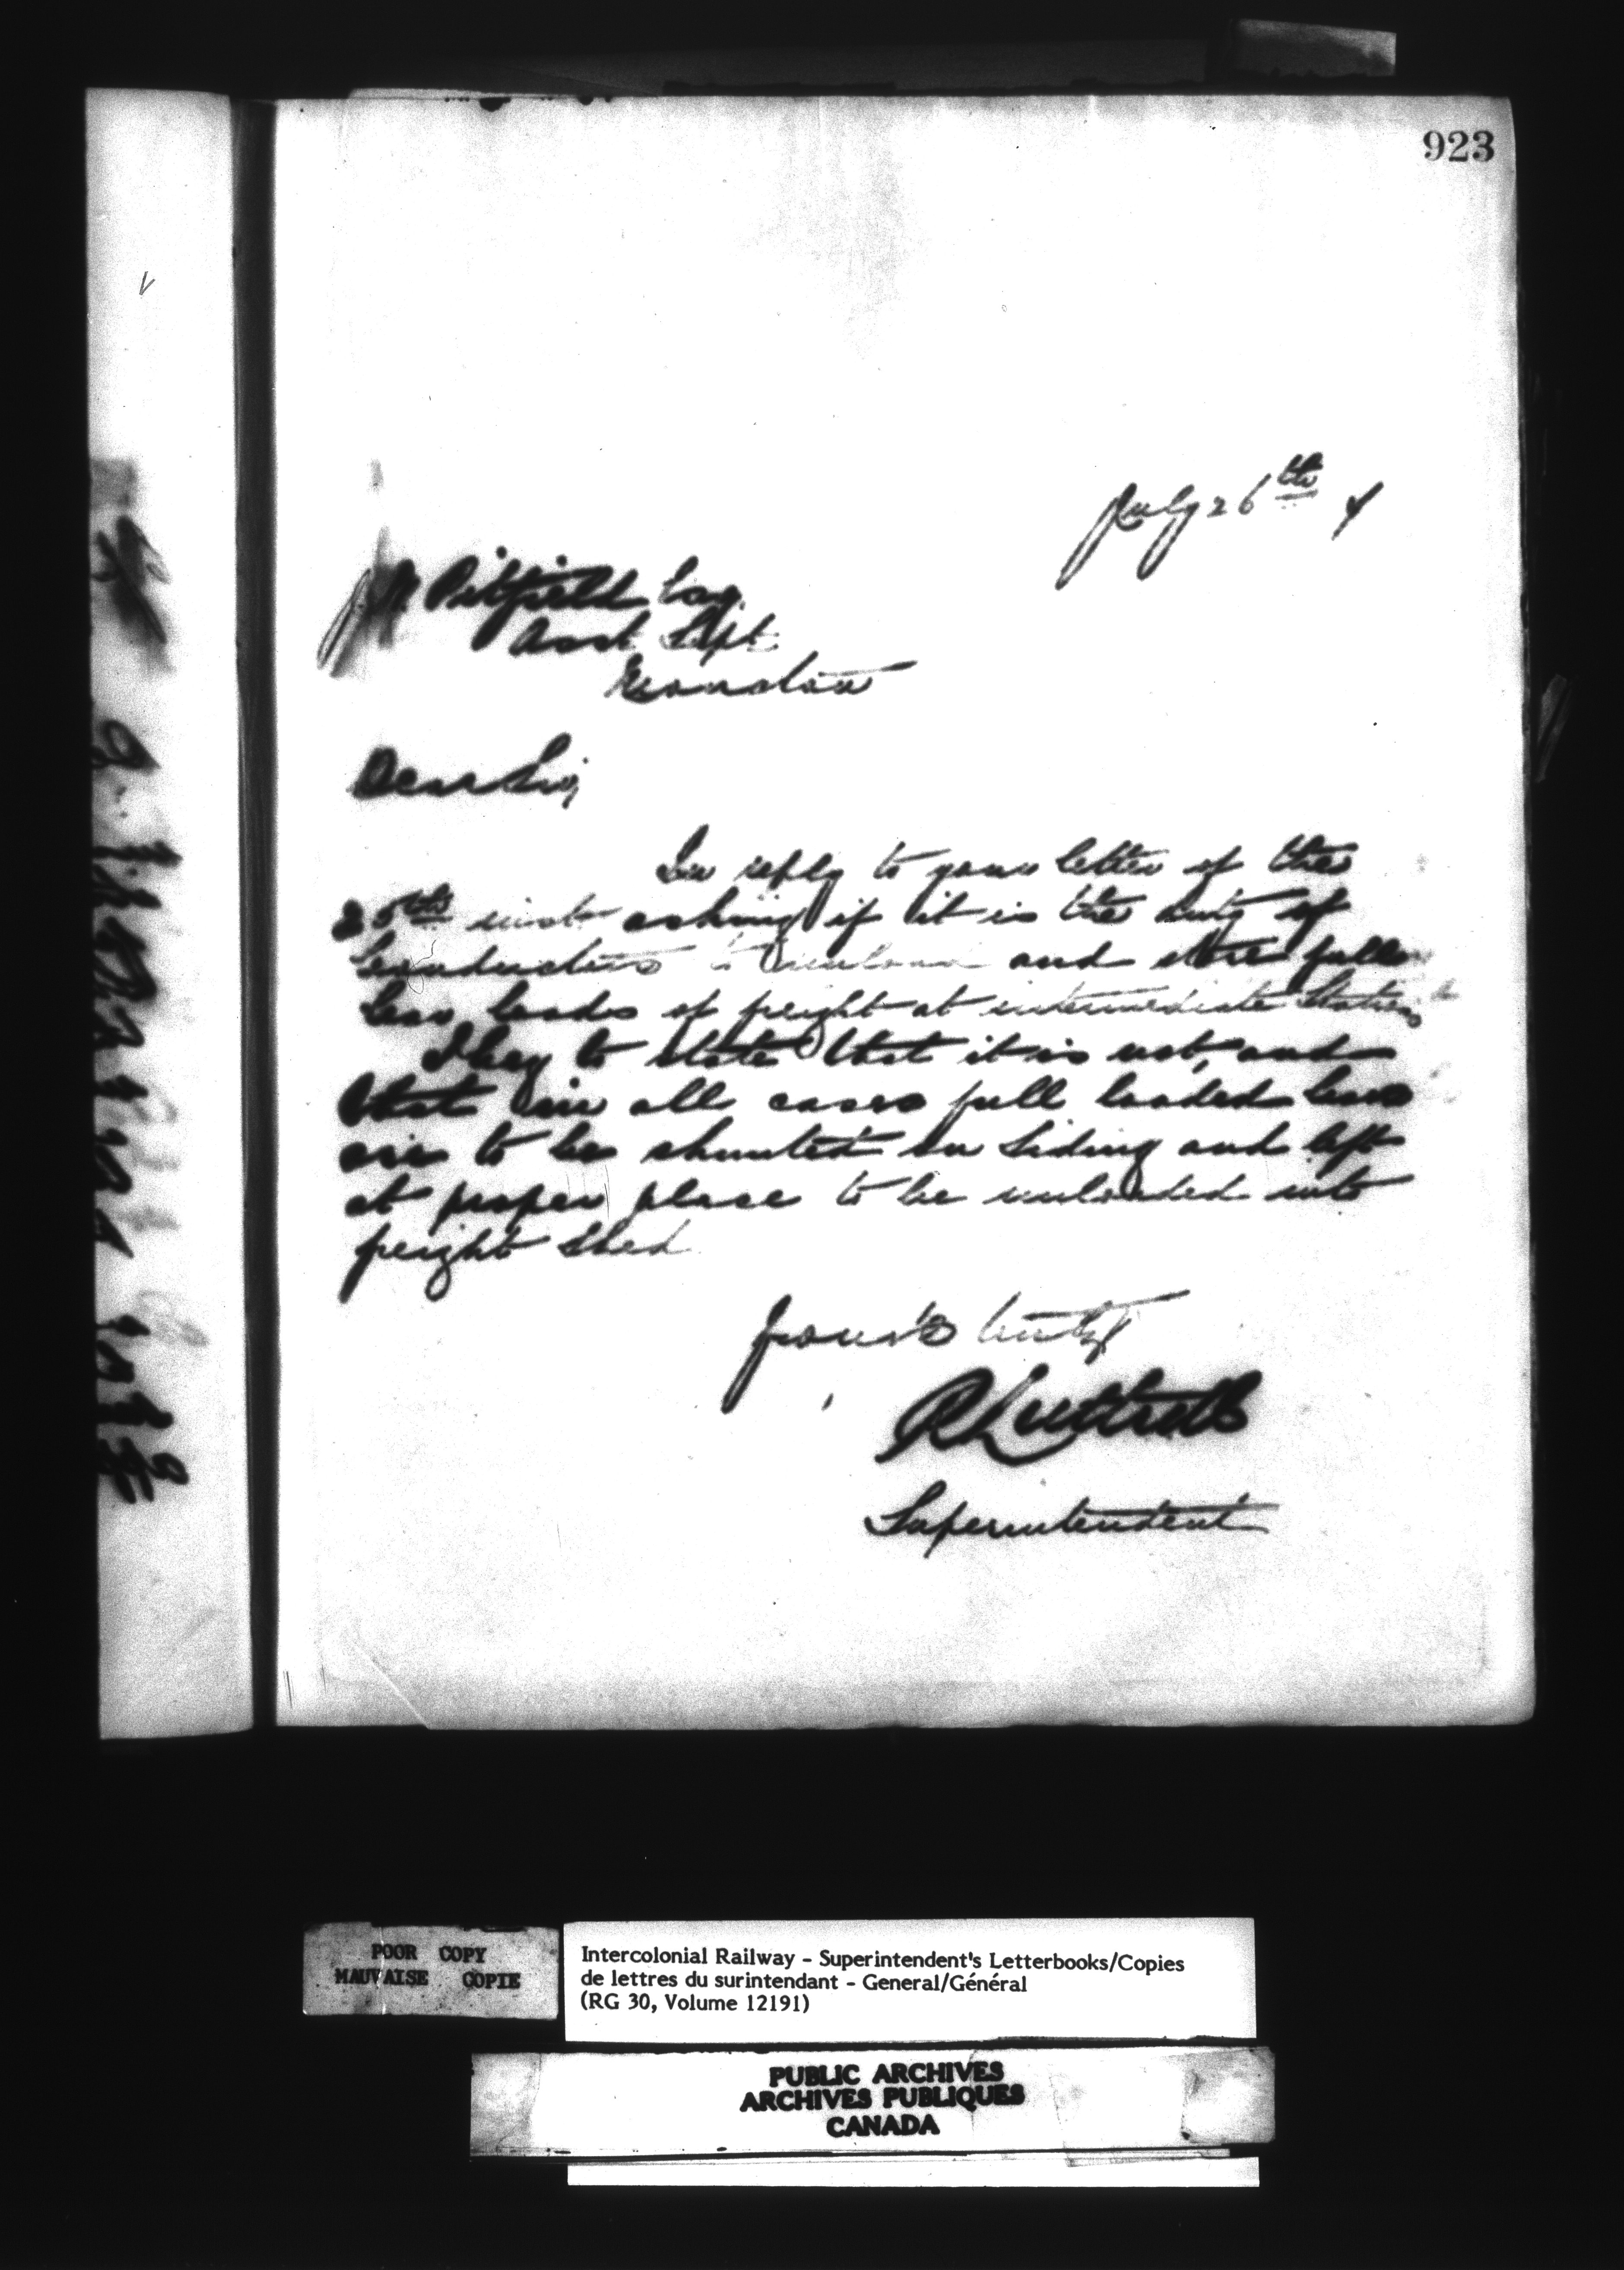 923
July 26th
Pitfield Esq
Asst Supt
Moncton
Dear Sir,
In reply to your letter of the
25th inst asking if it is the duty of
Conductors to unload and store full
Car loads of freight at intermediate Stations
I beg to state that it is not, and
that in all cases full loaded Cars
are to be shunted in Siding and left
at proper place to be unloaded into
freight Shed
Yours truly
R Luttrell
Superintendent
POOR COPY
MAUVAISE COPIE
Intercolonial Railway - Superintendent's Letterbooks/Copies
de lettres du surintendant - General/Général
(RG 30, Volume 12191)
PUBLIC ARCHIVES
ARCHIVES PUBLIQUES
CANADA